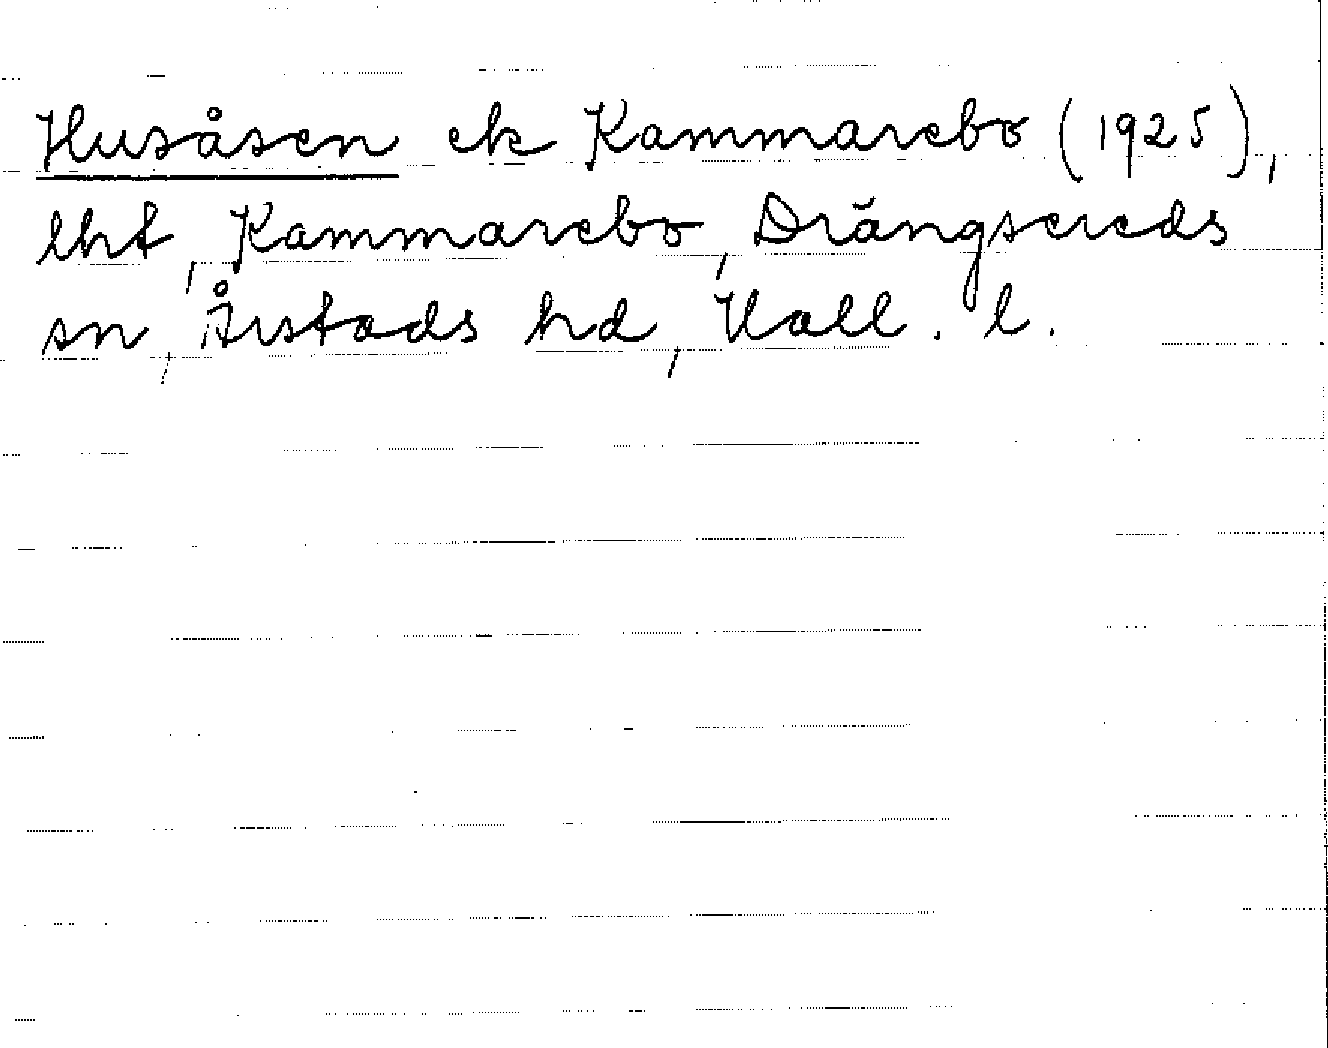 Husåsen ek Kammarebo (1925),
lht, Kammarebo, Drängsereds
sn, Årstads hd, Hall. l.